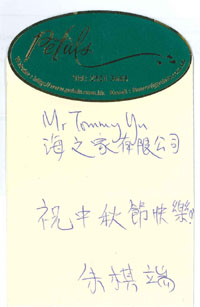 Petals
Mr Tommy Yu
海之家有限公司
祝中秋節快樂!
余棋端